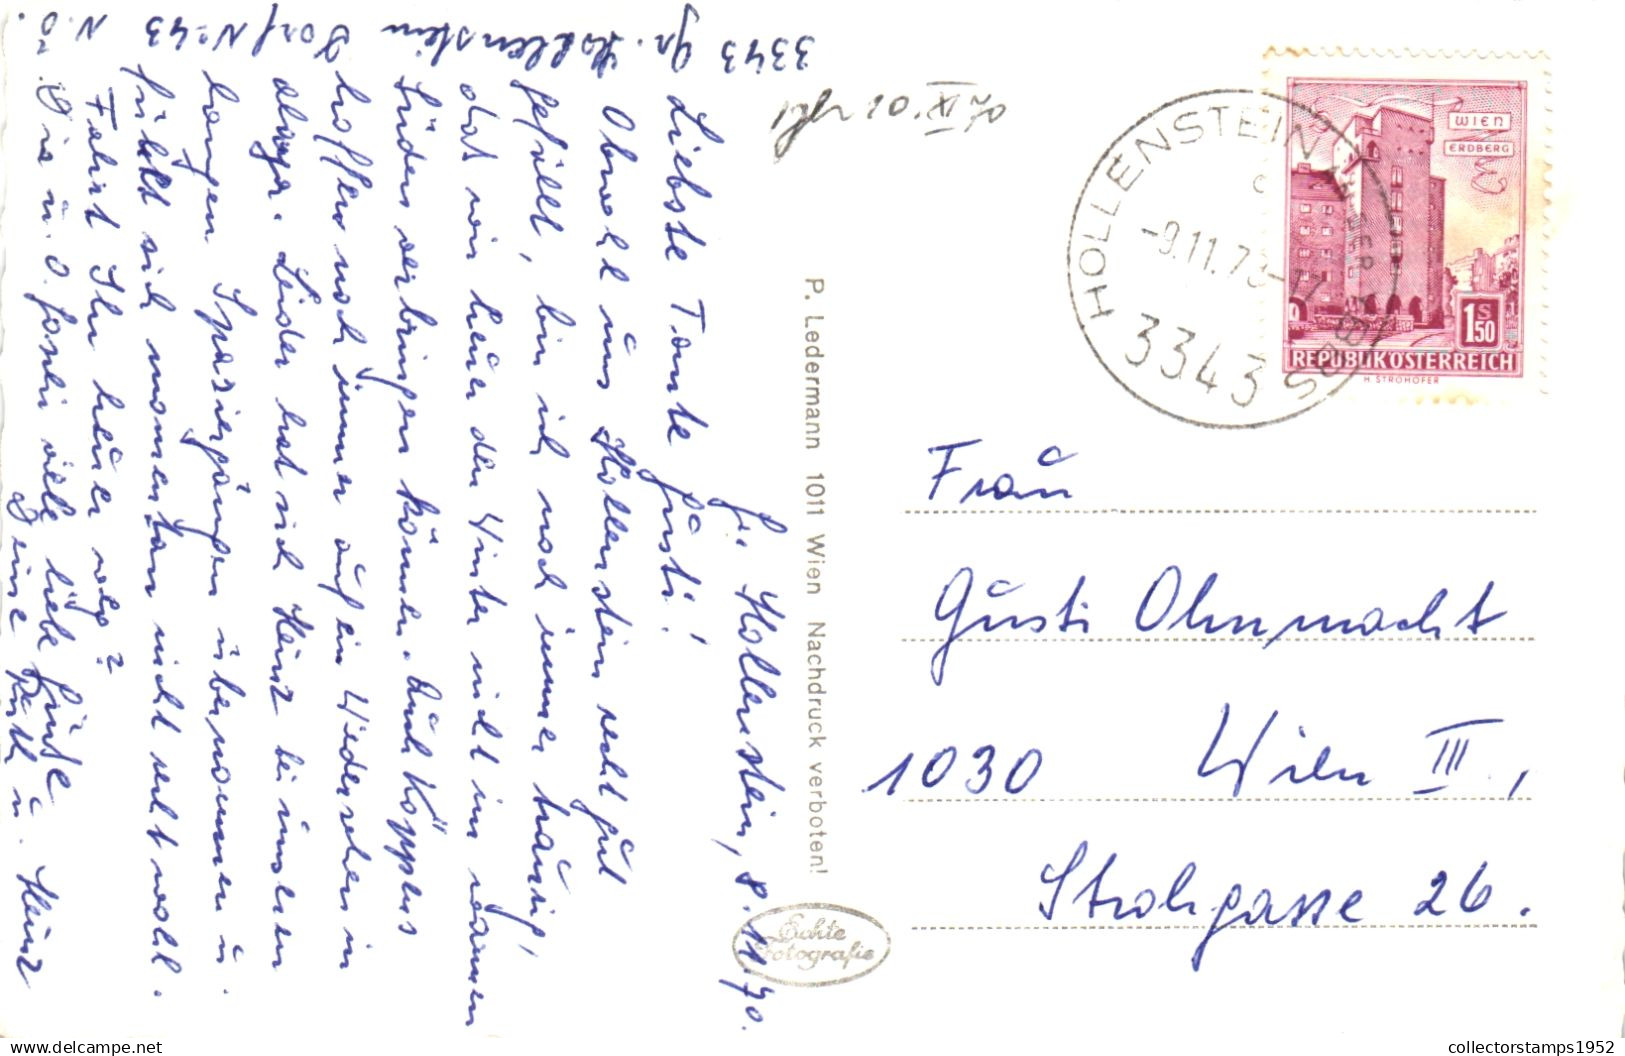 3343 Gr. Hollenstein Dorf No 43 N.Ö.
Gr. Hollenstein, 8.11.70.
Liebste Tante Gusti!
Obwohl uns Hollenstein recht gut
gefällt, bin ich noch immer traurig,
daß wir heuer den Winter nicht im warmen
Süden verbringen können. Auch Kopplers
hoffen noch immer auf ein Wiedersehen in
Leider hat sich Heinz bei unseren
langen Spaziergängen übernommen u.
fühlt sich momentan nicht recht wohl.
Fahrt Ihr heuer weg?
Dir u. O. Poldi viele liebe Grüße
Deine Ruth u. Heinz
P. Ledermann 1011 Wien Nachdruck verboten!
Echte
Fotografie
HOLLENSTEIN AN DER YBBS
-9.11.73-17
3343
WIEN
ERDBERG
1 S 50
REPUBLIK ÖSTERREICH
H. STROHOFER
Frau
Gusti Ohnmacht
1030 Wien III.,
Strohgasse 26.
collectorstamps1952
delcampe.net